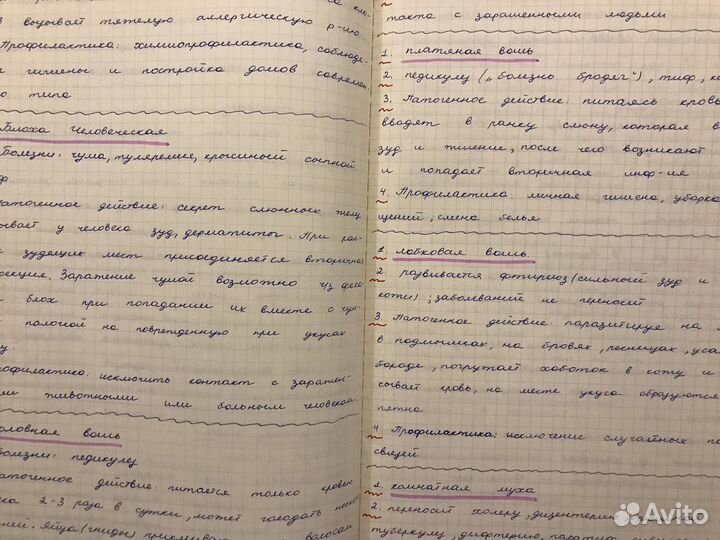 3 вызывает тяжелую аллергическую р-ию.
Профилактика: химиопрофилактика, соблюде-
гигиены и постройка домов современ.
о типа
Блоха Человеческая
Болезни: чума, туляремия, крысиный сыпной
ф
атогенное действие: секрет слюнных желу
ывает у человека зуд, дерматитог. При рас-
зудящих мест присоединяется вторична
екция. Заражение чумой возможно ч/з фека
блох при попадании их вместе с чум-
палочкой на поврежденную при укусах
у.
рофилактика: исключить контакт с заражен-
ми животными или больным человеком.
оловная вошь
болезни: педикулез
атогенное действие: питается только кровью
ка 2-3 раза в сутки, может голодать неско
ний. Яйца (гниды) приклеивает волосам
такта с зараженными людьми
1. платяная вошь
2. педикулез ("болезнь бродяг"), тиф,
3. Патогенное действие: питаясь кровь
вводят в ранку слюну, которая в
зуд и жжение, после чего возникают
и попадает вторичная инф-ия
4. Профилактика: личная гигиена, уборка
щений, смена белья
1. лобковая вошь.
2. развивается фтириоз (сильный зуд и
кожи); заболеваний не переносит
3. Патогенное действие: паразитируе на
в подмышках, на бровях, ресницах, уса
бороде, погружает хоботок в кожу и
сывает кровь, на месте укуса образуются
пятна
4 Профилактика: исключение случайных по
связей
1. комнатная муха
2. переносит холеру, дизентерию,
туберкулез, дифтерию, паратиф
Avito